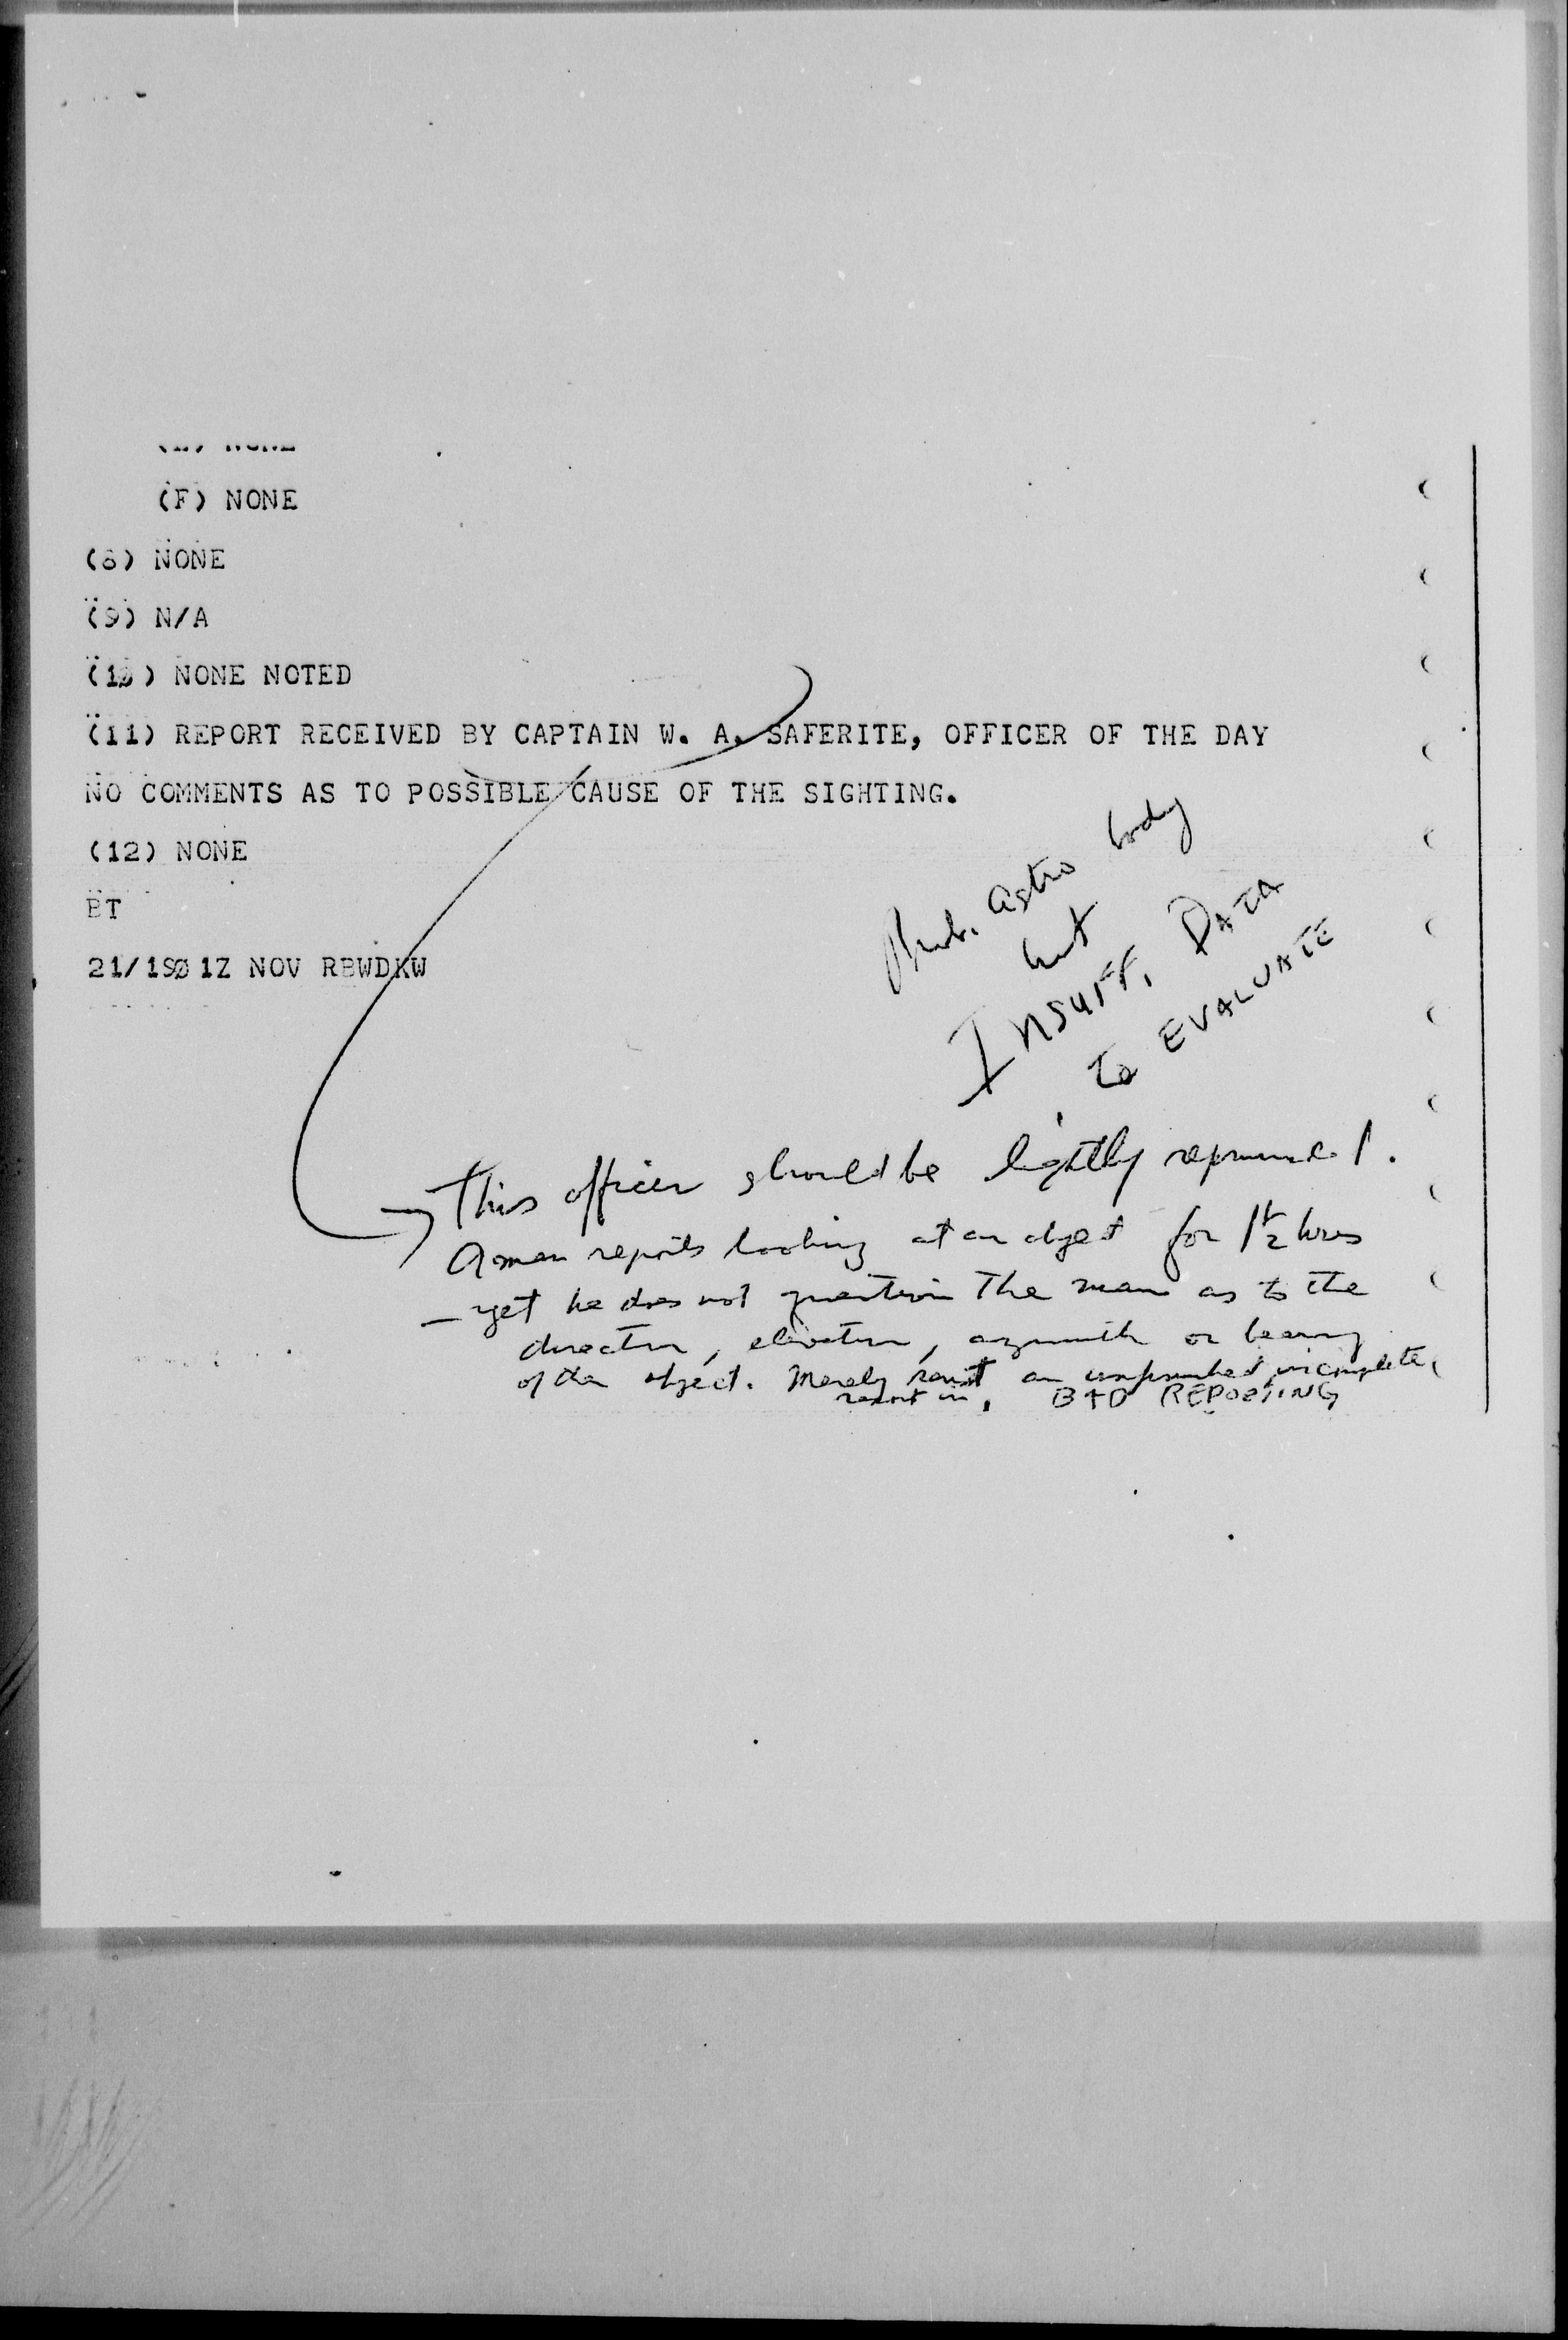 (F) NONE
(8) NONE
(9) N/A
(10) NONE NOTED
(11) REPORT RECEIVED BY CAPTAIN W. A. SAFERITE, OFFICER OF THE DAY
NO COMMENTS AS TO POSSIBLE CAUSE OF THE SIGHTING.
(12) NONE
BT
21/1901Z NOV RBWDKW
Prob. astro body
but
INSUFF. DATA
to EVALUATE
This officer should be lightly
A man reports looking at an object for 1 1/2 hours
— yet he does not question the man as to the
direction, elevation, azimuth or bearing
of the object. Merely sent an incomplete
report in. BAD REPORTING